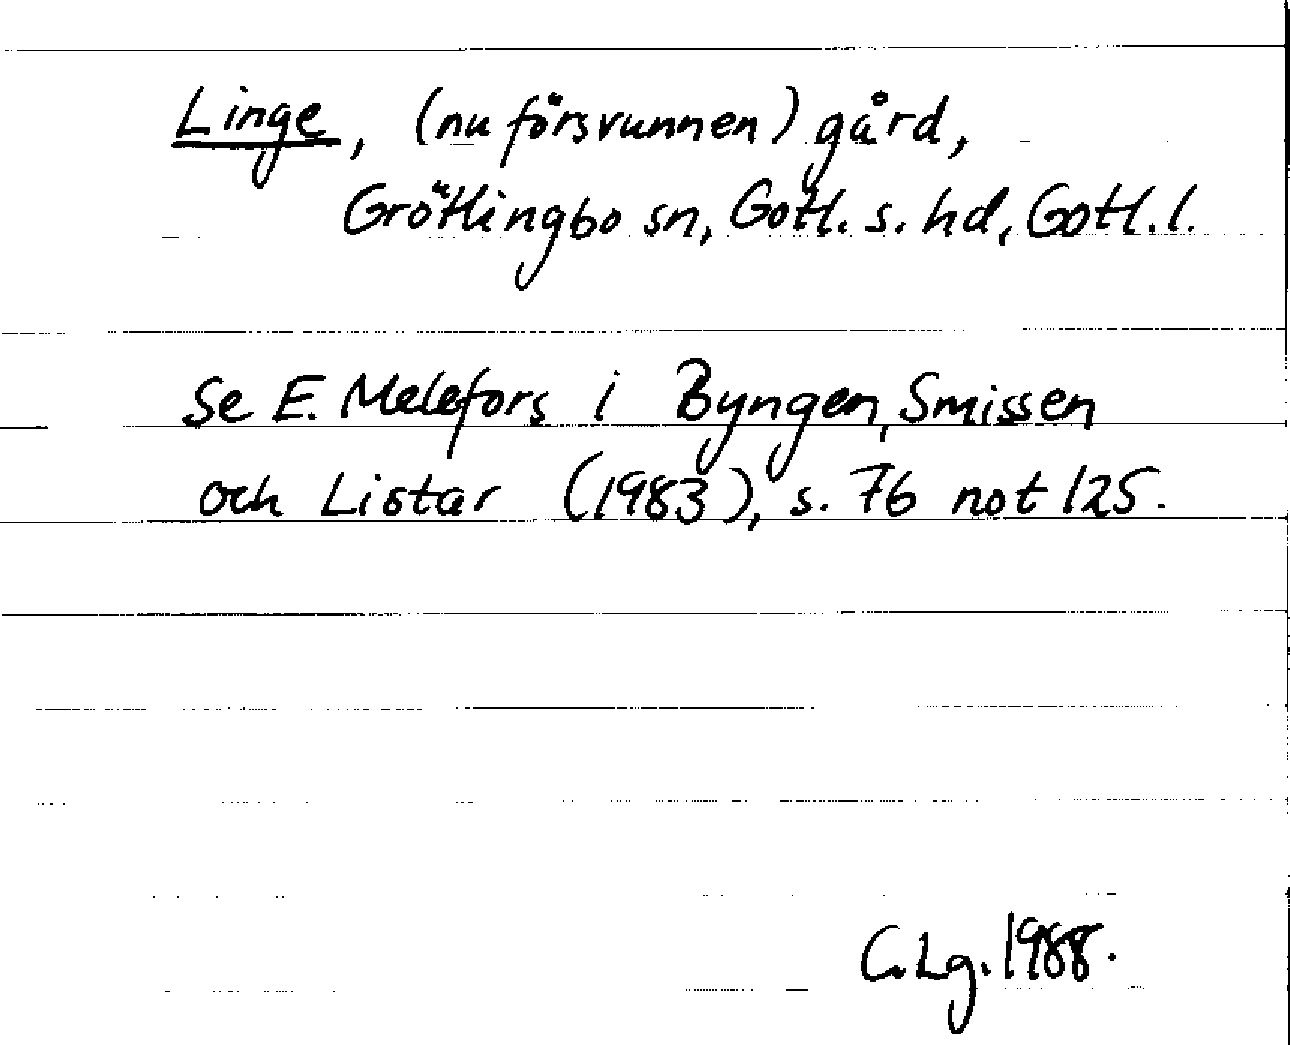 Linge, (nu försvunnen) gård,
Grötlingbo sn, Gotl. s. hd, Gotl. l.
Se E. Melefors i Byngen, Smissen
och Listar (1983), s. 76 not 125.
C. Lg. 1988.